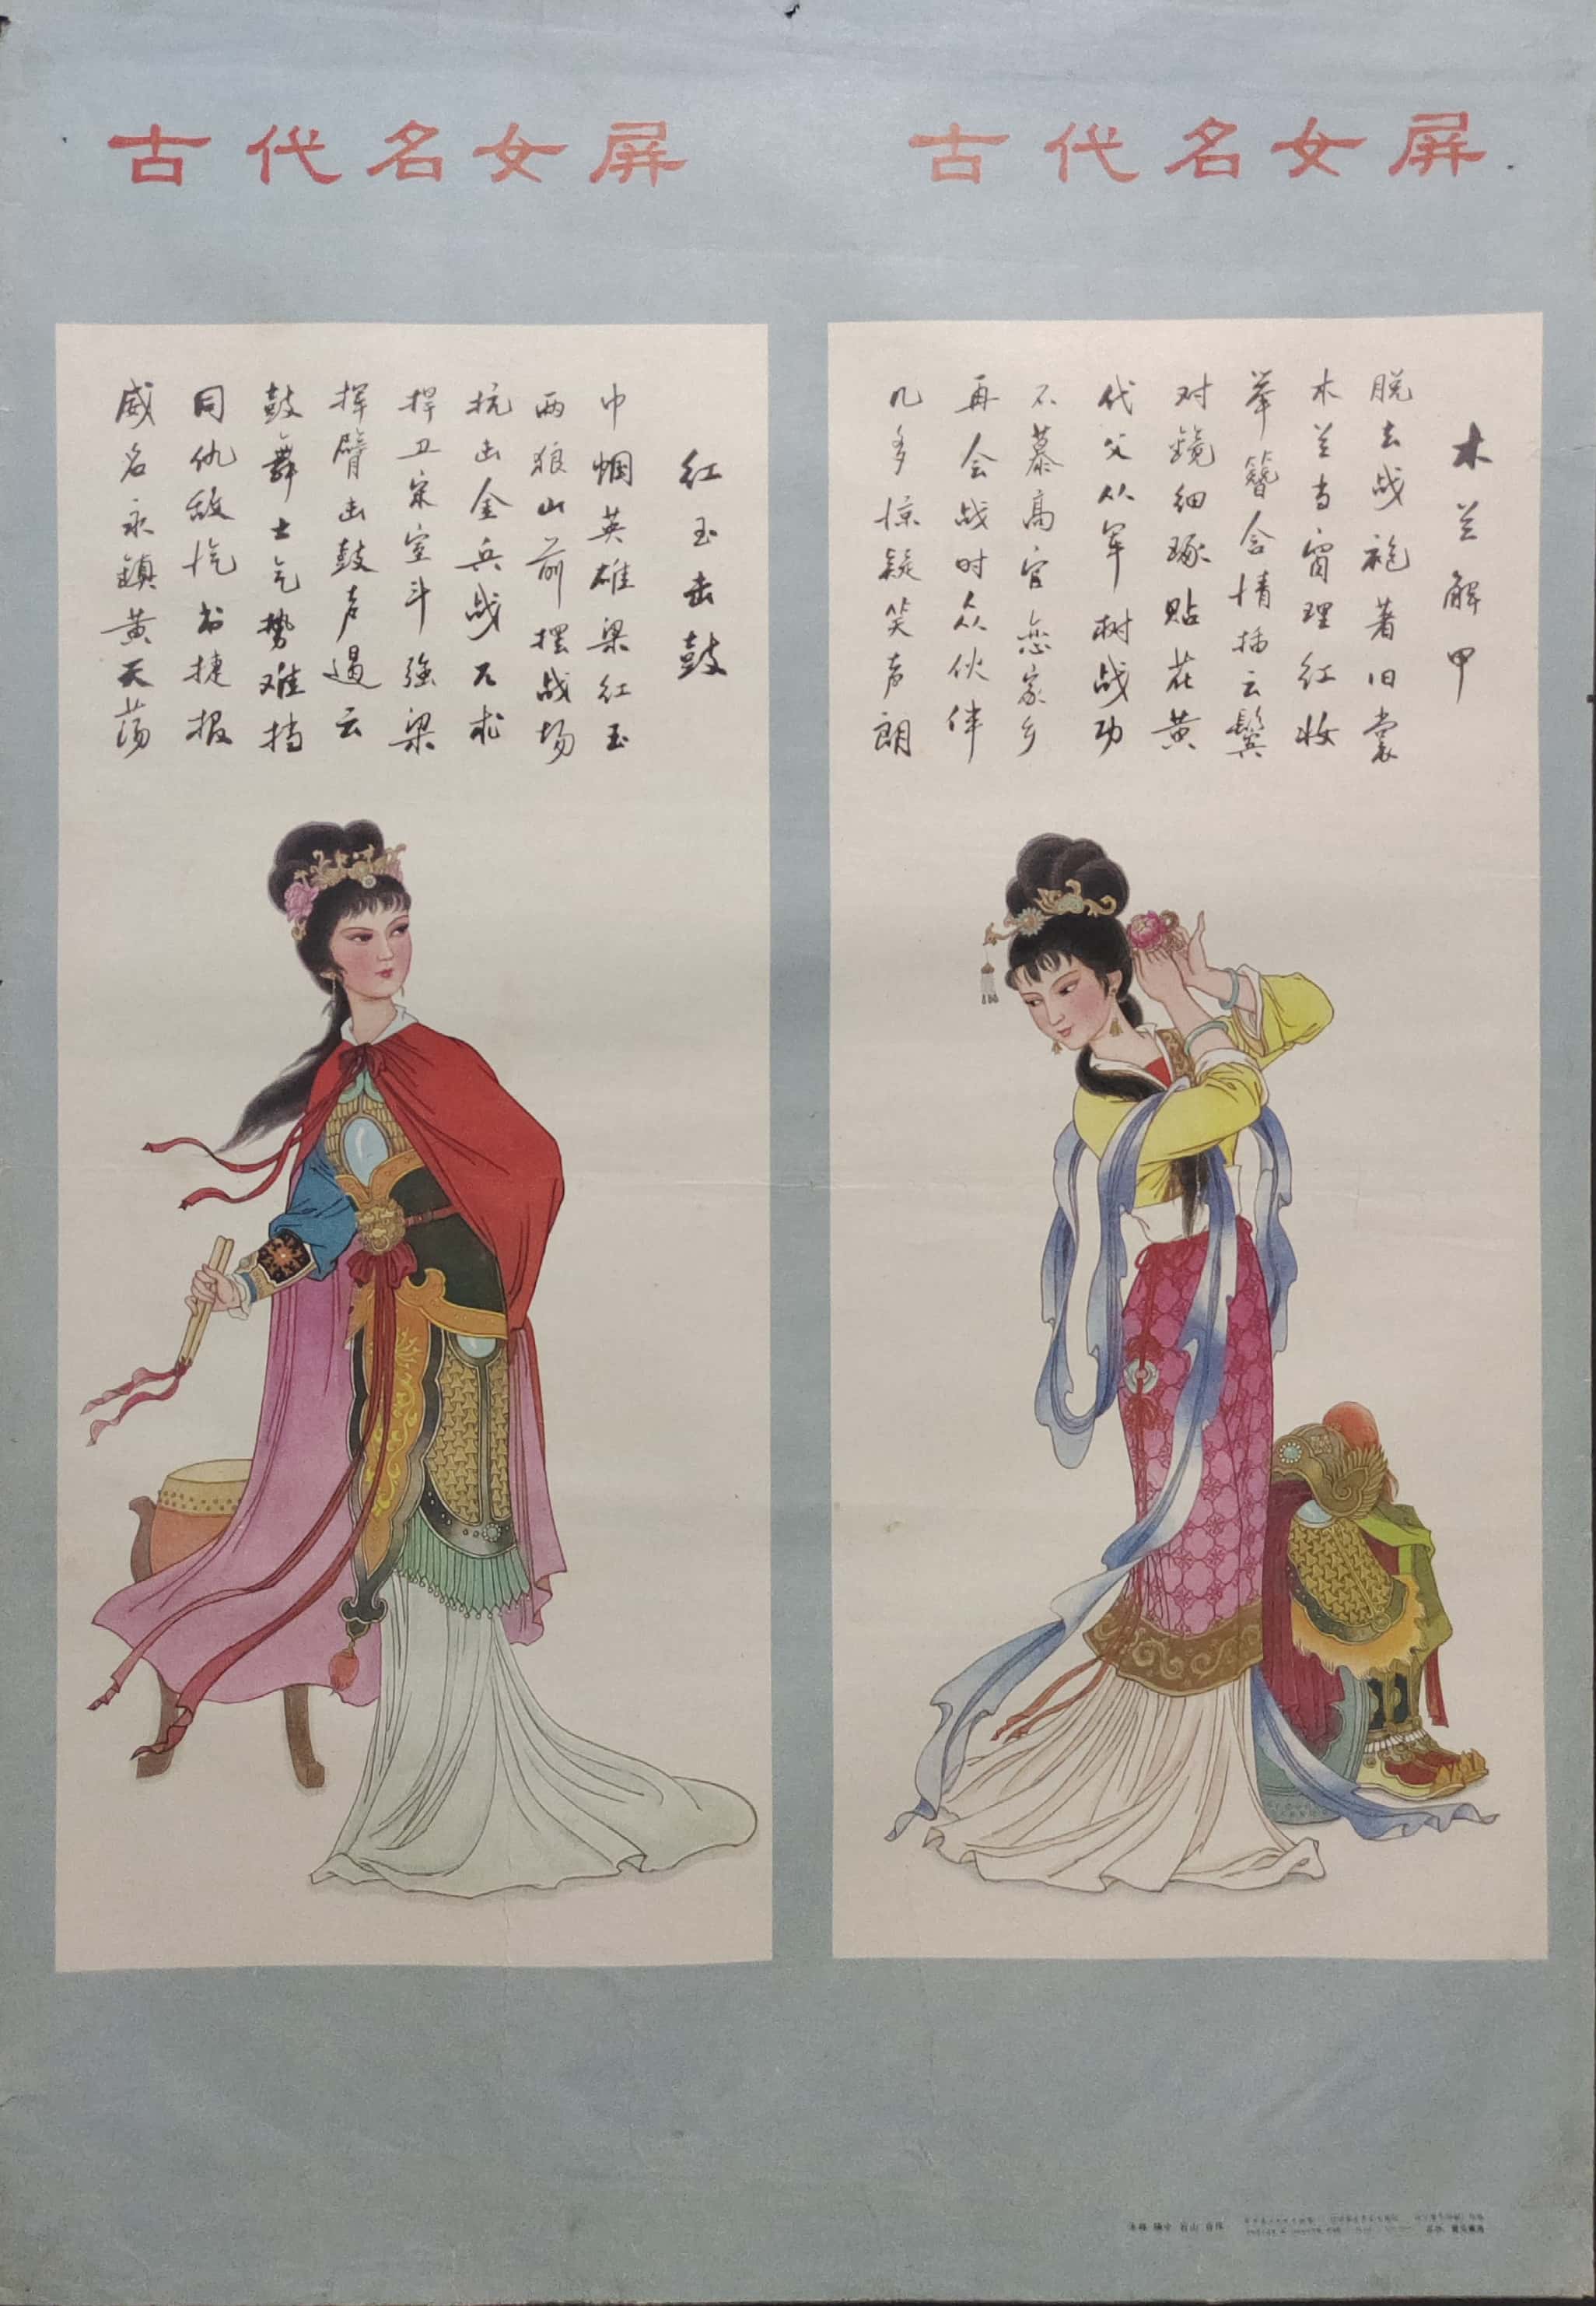 古代名女屏
古代名女屏
木兰解甲
脱去战袍著旧裳
木兰当窗理红妆
举簪含情插云鬓
对镜细琢贴花黄
代父从军树战功
不慕高官恋家乡
再会战时众伙伴
几多惊疑笑声朗
红玉击鼓
巾帼英雄梁红玉
两狼山前摆战场
抗击金兵战兀术
捍卫宋室斗强梁
挥臂击鼓声遏云
鼓舞士气势难挡
同仇敌忾书捷报
威名永鎮黄天荡